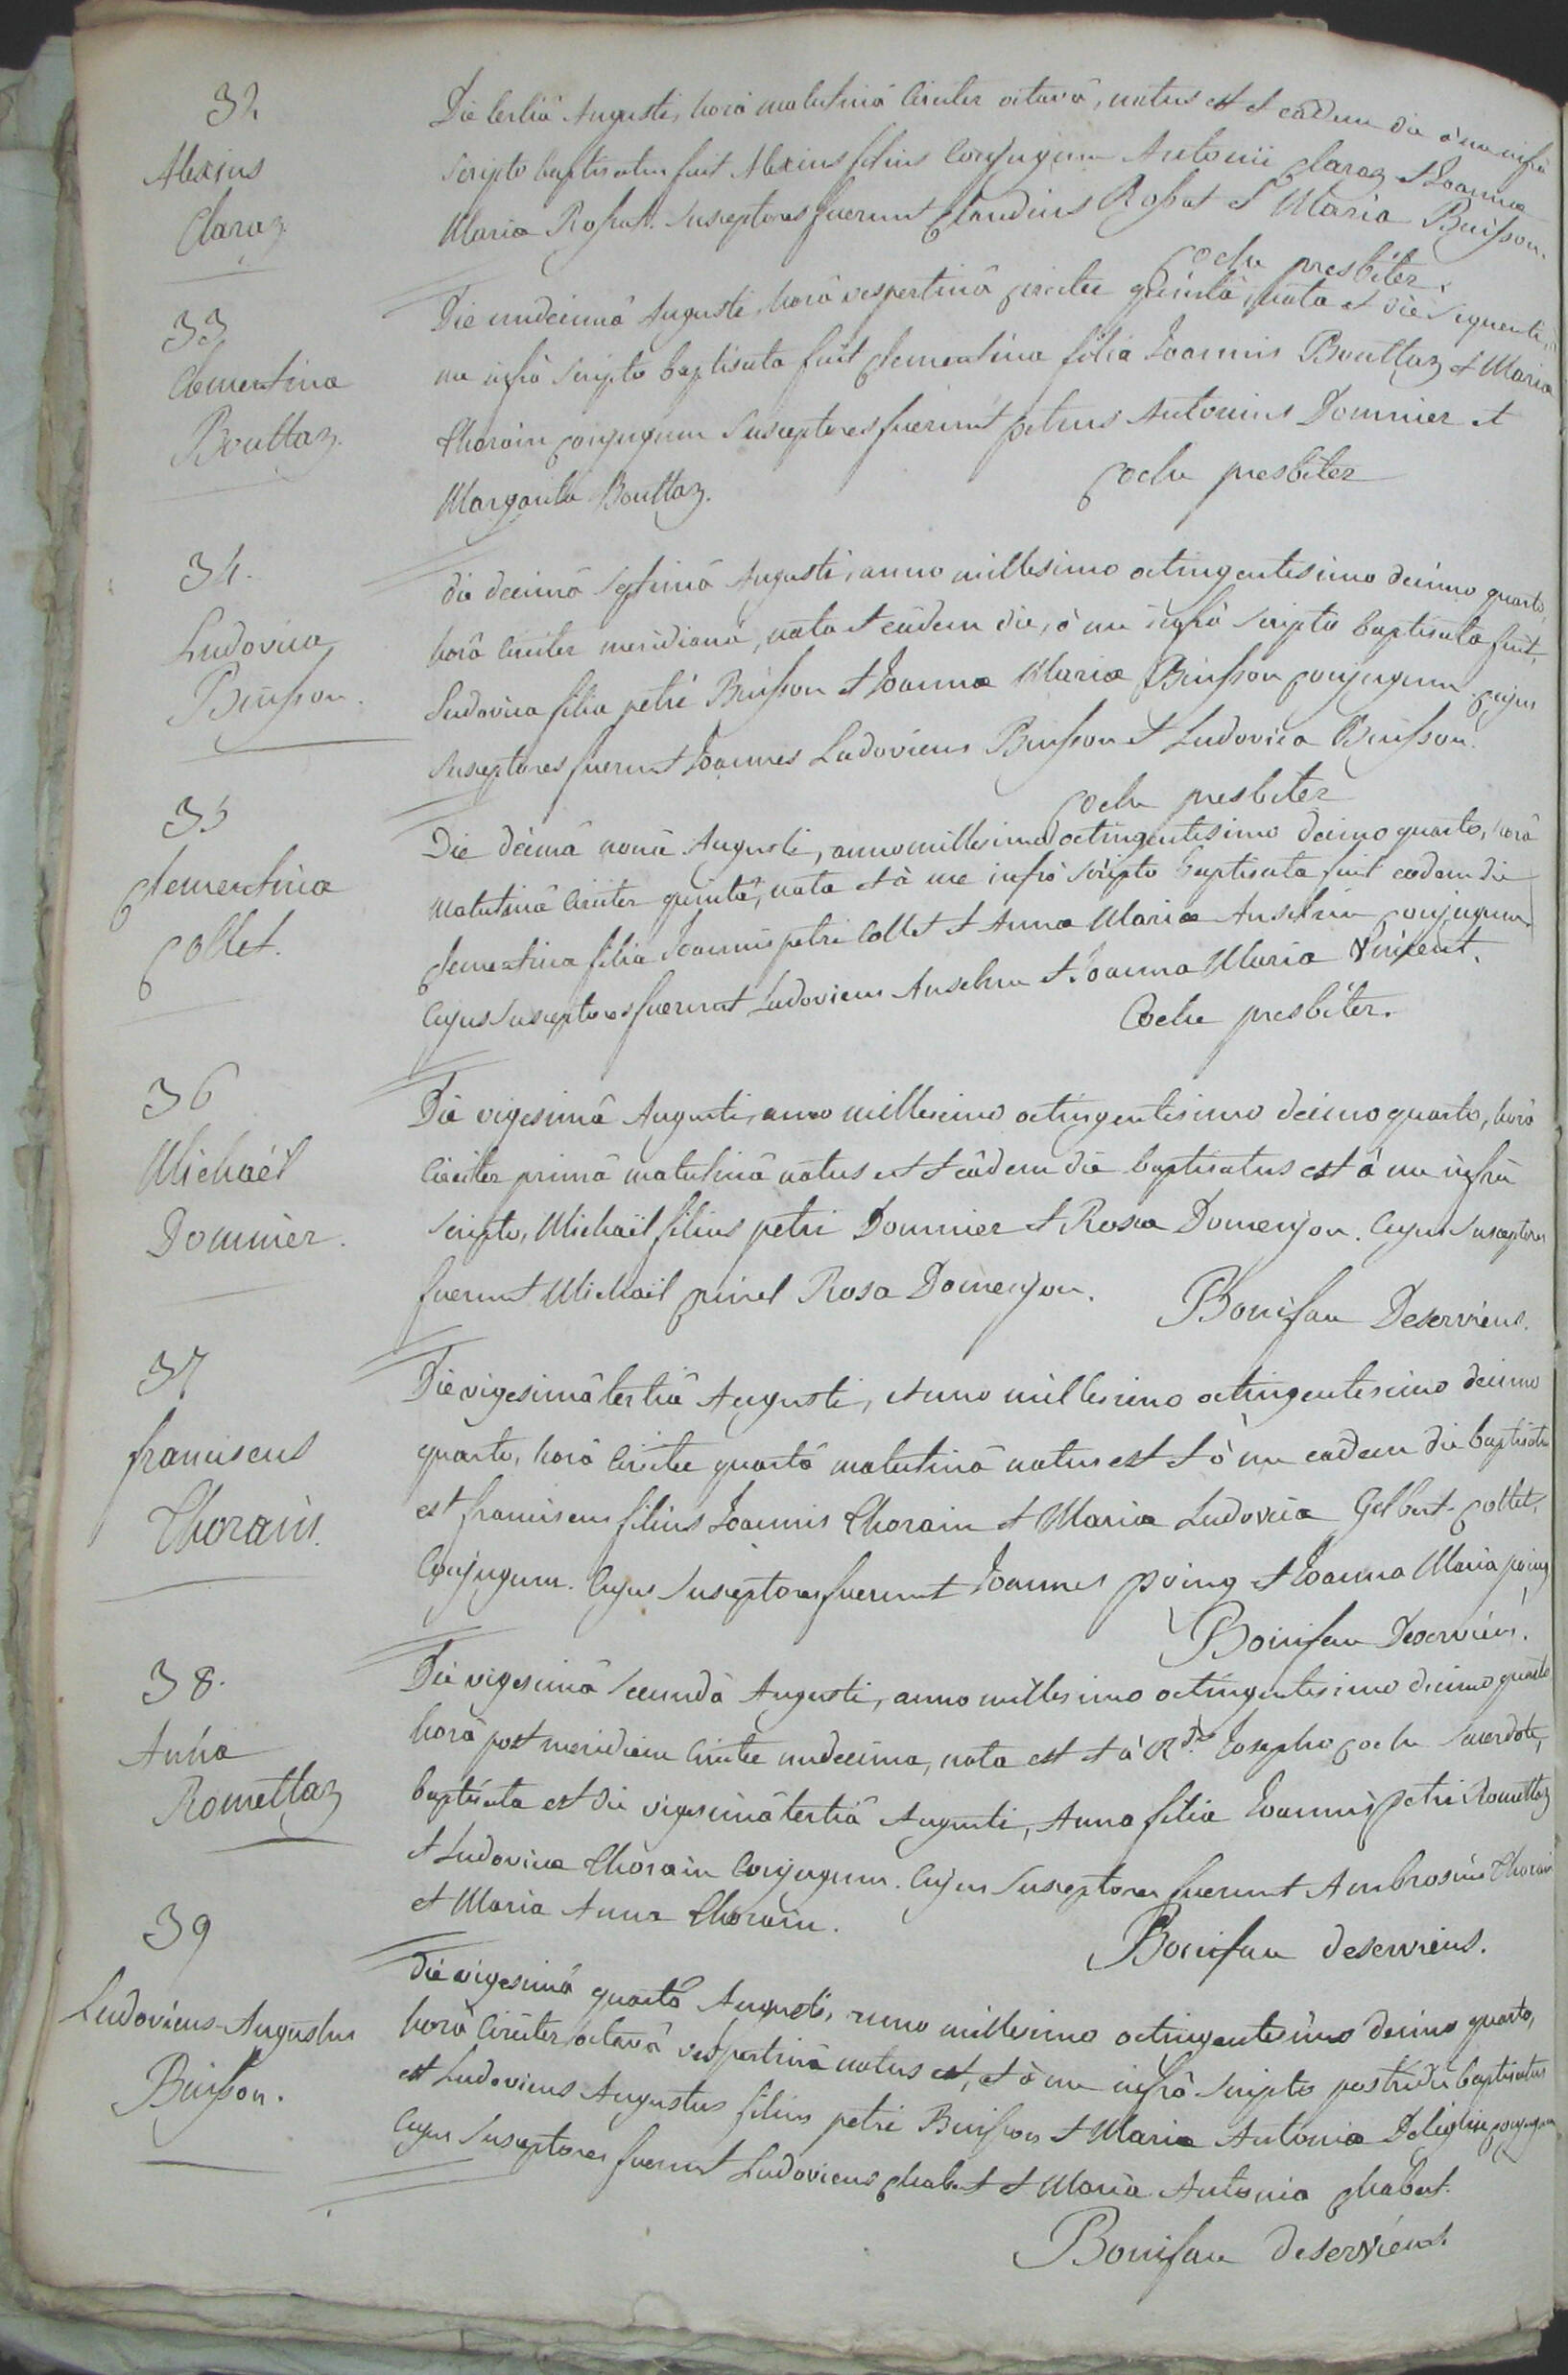 32
Alexius
Claraz.
Die tertiâ Augusti, horâ matutinâ Circiter octavâ, natus est et eâdem die à me infrà
scripto baptisatus fuit Alexius filius Conjugum Antonii Claraz et Joannæ
Mariæ Rossat. Susceptores fuerunt Claudius Rossat et Maria Buisson.
Coche presbiter.
33
Clementina
Bouttaz.
Die undecimâ Augusti, horâ vespertinâ circiter quintâ, nata et die sequenti, à
me infrà scripto baptisata fuit Clementina filia Joannis Bouttaz et Mariæ
Thorain conjugum Susceptores fuerunt petrus Antonius Dounier et
Margarita Bouttaz.
Coche presbiter
34.
Ludovica
Buisson.
die decimâ septimâ Augusti, anno millesimo octingentesimo decimo quarto,
horâ Circiter meridianâ, nata et eâdem die, à me infrà scripto baptisata fuit,
Ludovica filia petri Buisson et Joannæ Mariæ Buisson conjugum. cujus
susceptores fuerunt Joannes Ludovicus Buisson et Ludovica Buisson.
Coche presbiter
35
Clementina
Collet.
Die décimâ nonâ Augusti, anno millesimo octingentesimo decimo quarto, horâ
matutinâ Circiter quintâ, nata et à me infrà scripto baptisata fuit eadem die
Clementina filia Joannis petri Collet et Annæ Mariæ Anselme conjugum
Cujus susceptores fuerunt Ludovicus Anselme et Joanna Maria Vincent.
Coche presbiter.
36
Michaël
Dounier.
Die vigesimâ Augusti, anno millesimo octingentesimo decimo quarto, horâ
Circiter primâ matutinâ natus est et eâdem die baptisatus est à me infrà
scripto, Michaël filius petri Dounier et Rosæ Domenjon. Cujus susceptores
fuerunt Michaël Rosa Domenjon.
Boniface Deserviens.
37
franciscus
Thorain.
Die vigesimâ tertiâ Augusti, Anno millesimo octingentesimo decimo
quarto, horâ Circiter quartâ matutinâ natus est et à me eadem die baptisatus
est franciscus filius Joannis Thorain et Mariæ Ludovicæ Gilbert-Collet,
Conjugum. Cujus susceptores fuerunt Joannes poing et Joanna Maria poing
Boniface Deserviens.
38.
Anna
Romettaz
Die vigesimâ secundâ Augusti, anno millesimo octingentesimo decimo quarto
horâ post meridiem Circiter undecima, nata est et à Rdo. Josepho Coche Sacerdote,
baptisata est die vigesimâ tertiâ Augusti, Anna filia Joannis petri Romettaz
et Ludovicæ Thorain Conjugum. Cujus susceptores fuerunt Ambrosius Thorain
et Maria Anna Thorain.
Boniface deserviens.
39
Ludovicus-Augustus
Buisson.
die vigesimâ quartâ Augusti, anno millesimo octingentesimo decimo quarto,
horâ Circiter octavâ vespertinâ natus est, et à me infrà scripto postridie baptisatus
est Ludovicus Augustus filius petri Buisson et Mariæ Antoniæ Deléglise conjugum
Cujus susceptores fuerunt Ludovicus Chabert et Maria Antonia Chabert.
Boniface deserviens.